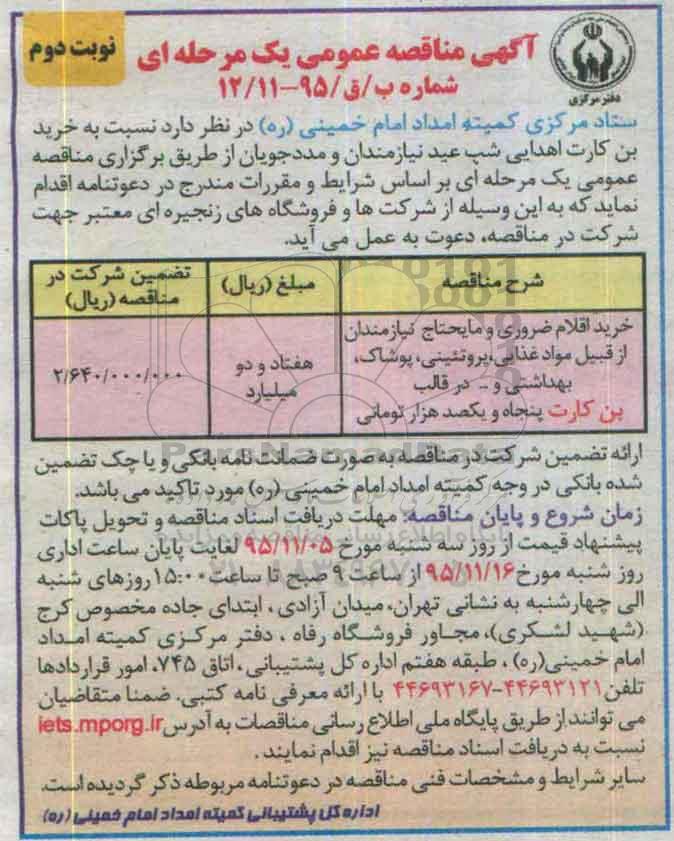 نوبت دوم
آگهی مناقصه عمومی یک مرحله ای
شماره ب/ق/۹۵-۱۲/۱۱
دفتر مرکزی
ستاد مرکزی کمیته امداد امام خمینی (ره) در نظر دارد نسبت به خرید
بن کارت اهدایی شب عید نیازمندان و مددجویان از طریق برگزاری مناقصه
عمومی یک مرحله ای بر اساس شرایط و مقررات مندرج در دعوتنامه اقدام
نماید که به این وسیله از شرکت ها و فروشگاه های زنجیره ای معتبر جهت
شرکت در مناقصه، دعوت به عمل می آید.
شرح مناقصه
مبلغ (ریال)
تضمین شرکت در
مناقصه (ریال)
خرید اقلام ضروری و مایحتاج نیازمندان
از قبیل مواد غذایی،پروتئینی، پوشاک،
بهداشتی و ... در قالب
بن کارت پنجاه و یکصد هزار تومانی
هفتاد و دو
میلیارد
۲/۶۴۰/۰۰۰/۰۰۰
ارائه تضمین شرکت در مناقصه به صورت ضمانت نامه بانکی و یا چک تضمین
شده بانکی در وجه کمیته امداد امام خمینی (ره) مورد تاکید می باشد.
زمان شروع و پایان مناقصه: مهلت دریافت اسناد مناقصه و تحویل پاکات
پیشنهاد قیمت از روز سه شنبه مورخ ۹۵/۱۱/۰۵ لغایت پایان ساعت اداری
روز شنبه مورخ ۹۵/۱۱/۱۶ از ساعت ۹ صبح تا ساعت ۱۵:۰۰ روزهای شنبه
الی چهارشنبه به نشانی تهران، میدان آزادی ، ابتدای جاده مخصوص کرج
(شهید لشکری)، مجاور فروشگاه رفاه ، دفتر مرکزی کمیته امداد
امام خمینی(ره) ، طبقه هفتم اداره کل پشتیبانی ، اتاق ۷۴۵، امور قراردادها
تلفن ۴۴۶۹۳۱۲۱-۴۴۶۹۳۱۶۷ با ارائه معرفی نامه کتبی. ضمنا متقاضیان
می توانند از طریق پایگاه ملی اطلاع رسانی مناقصات به آدرس iets.mporg.ir
نسبت به دریافت اسناد مناقصه نیز اقدام نمایند .
سایر شرایط و مشخصات فنی مناقصه در دعوتنامه مربوطه ذکر گردیده است.
اداره کل پشتیبانی کمیته امداد امام خمینی (ره)